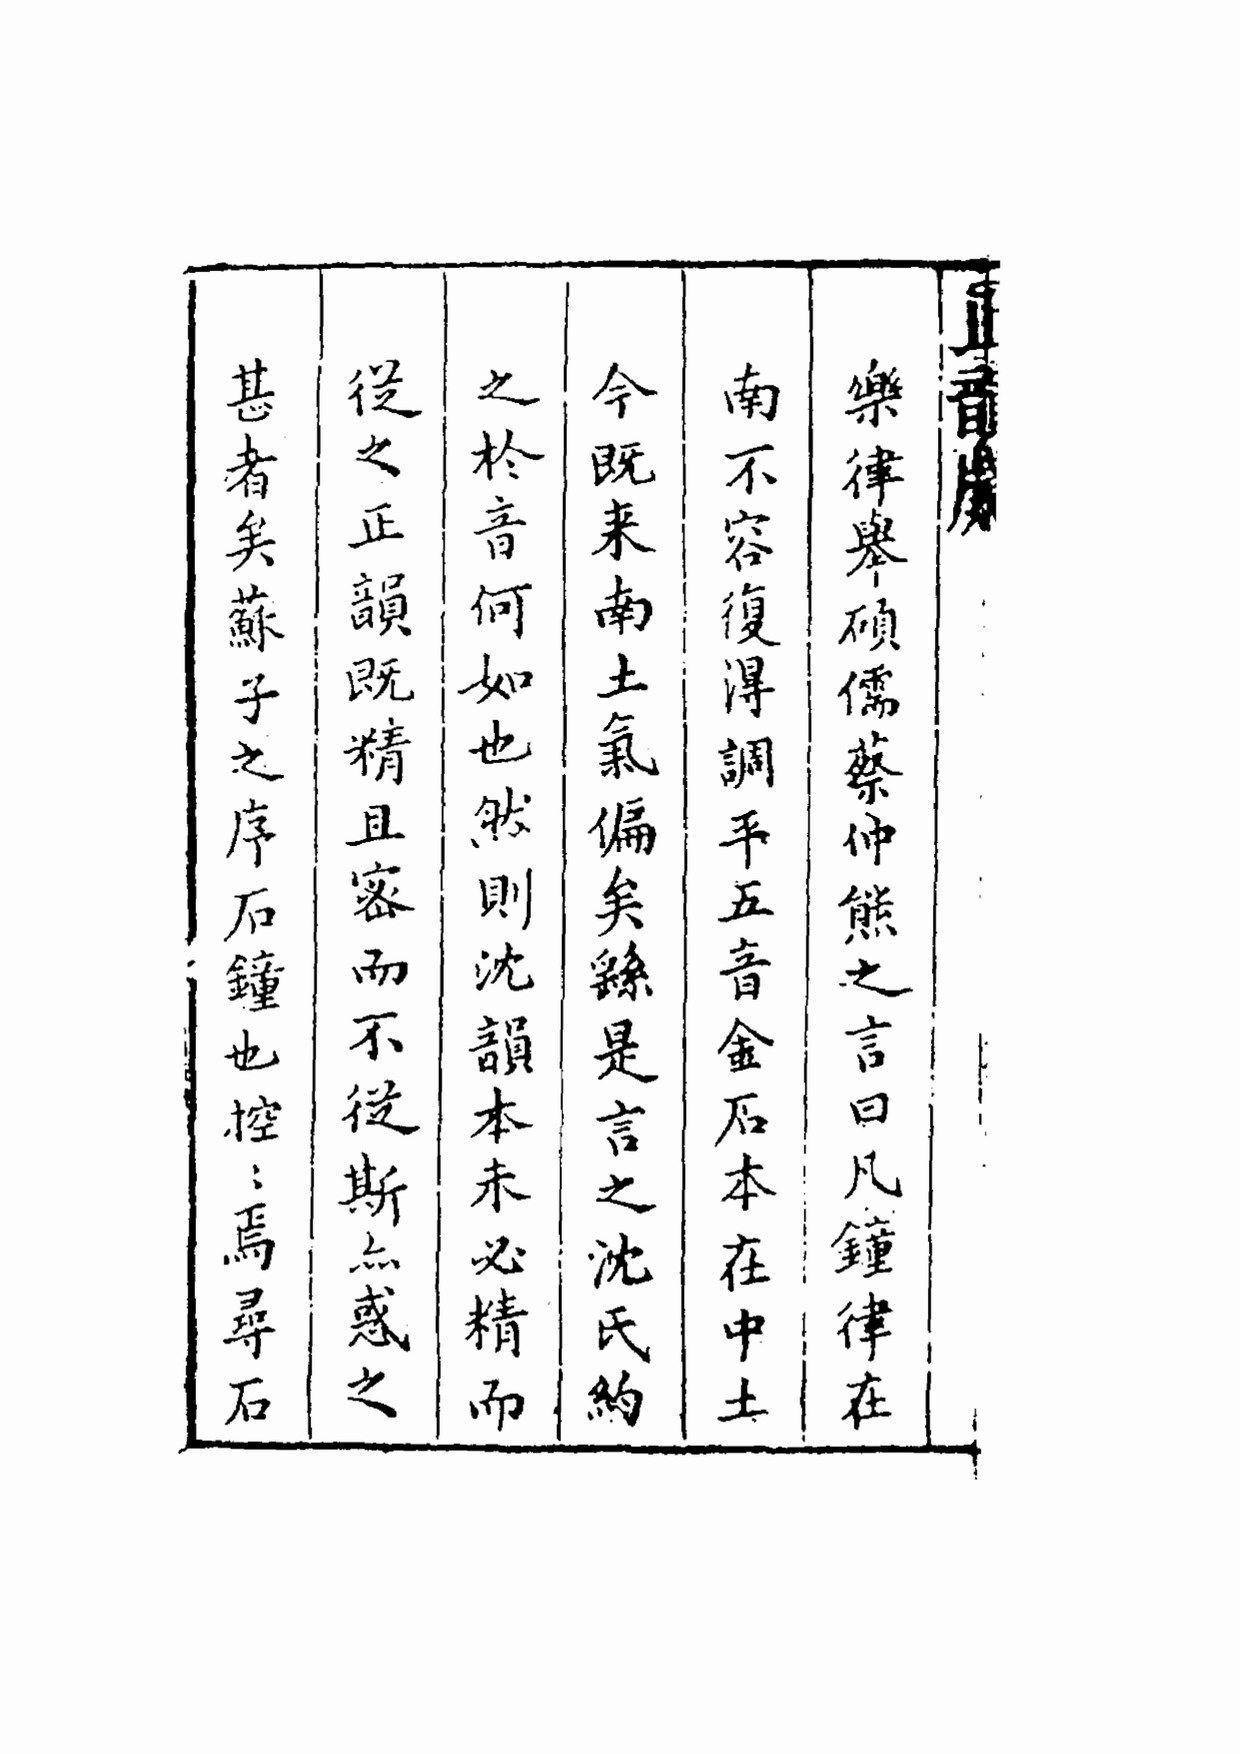 正音
樂律舉碩儒蔡仲熊之言曰凡鐘律在
南不容復淂調平五音金石本在中土
今既来南土氣偏矣繇是言之沈氏約
之於音何如也然則沈韻本未必精而
從之正韻既精且密而不從斯亦惑之
甚者矣蘇子之序石鐘也控〻焉尋石